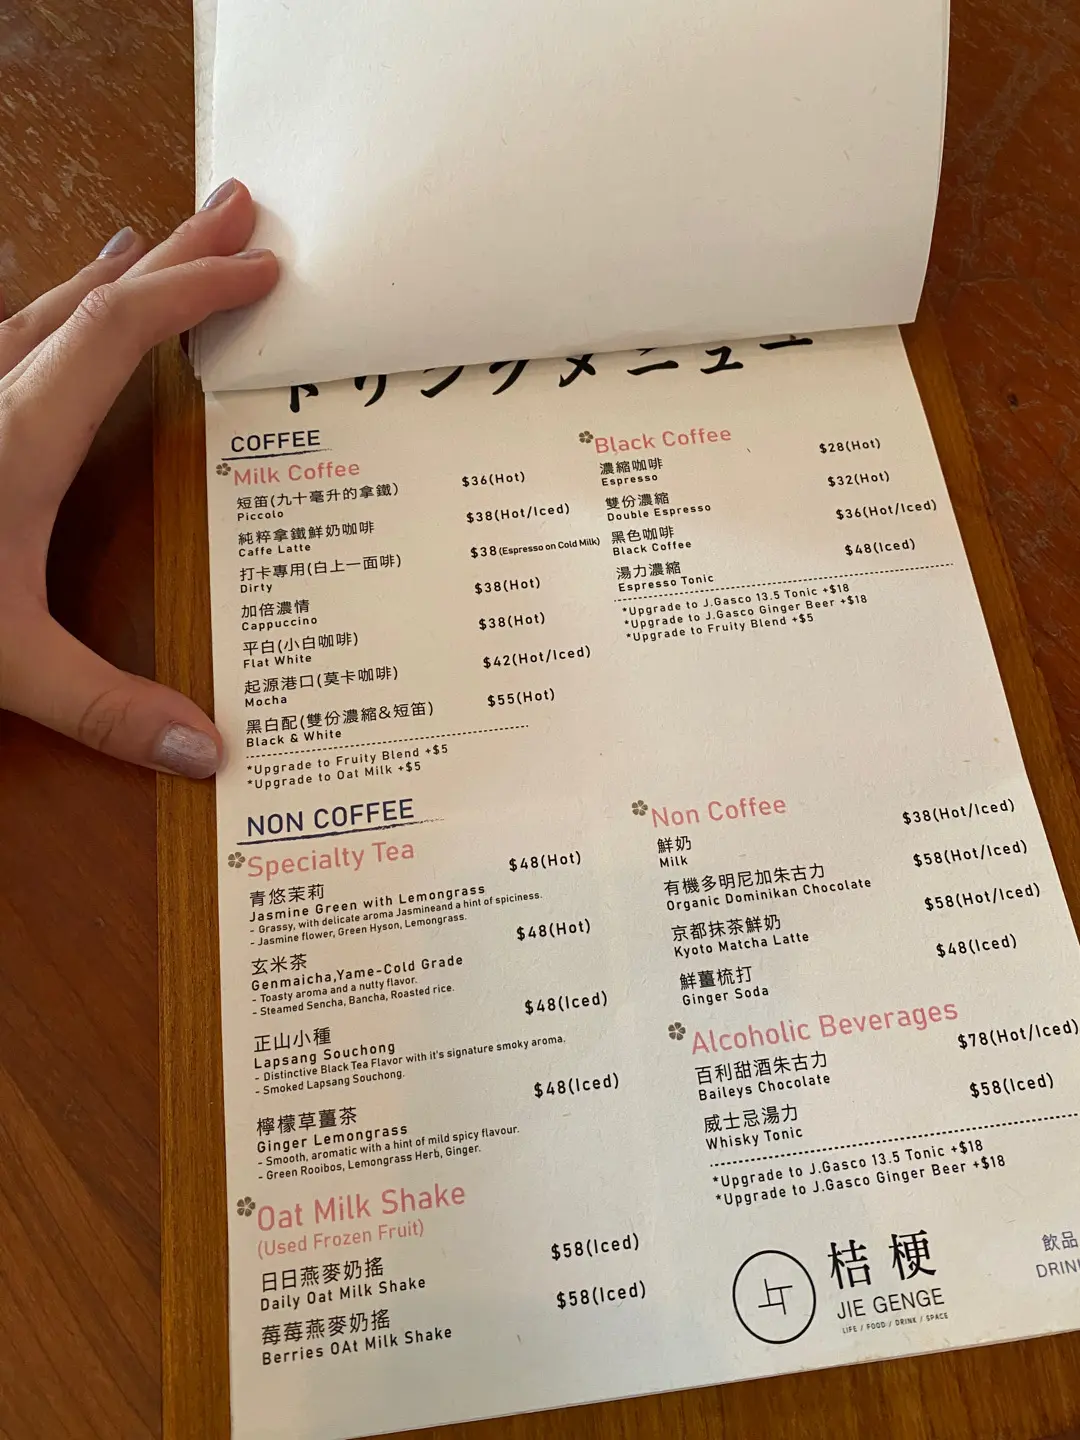 ドリンクメニュー
COFFEE
Milk Coffee
短笛(九十毫升的拿鐵) $36(Hot)
Piccolo
純粹拿鐵鮮奶咖啡 $38(Hot/Iced)
Caffe Latte
打卡專用(白上一面啡) $38(Espresso on Cold Milk)
Dirty
加倍濃情 $38(Hot)
Cappuccino
平白(小白咖啡) $38(Hot)
Flat White
起源港口(莫卡咖啡) $42(Hot/Iced)
Mocha
黑白配(雙份濃縮&短笛) $55(Hot)
Black & White
*Upgrade to Fruity Blend +$5
*Upgrade to Oat Milk +$5
Black Coffee
濃縮咖啡 $28(Hot)
Espresso
雙份濃縮 $32(Hot)
Double Espresso
黑色咖啡 $36(Hot/Iced)
Black Coffee
湯力濃縮 $48(Iced)
Espresso Tonic
*Upgrade to J.Gasco 13.5 Tonic +$18
*Upgrade to J.Gasco Ginger Beer +$18
*Upgrade to Fruity Blend +$5
NON COFFEE
Specialty Tea
青悠茉莉 $48(Hot)
Jasmine Green with Lemongrass
- Grassy, with delicate aroma Jasmineand a hint of spiciness.
- Jasmine flower, Green Hyson, Lemongrass.
玄米茶 $48(Hot)
Genmaicha,Yame-Cold Grade
- Toasty aroma and a nutty flavor.
- Steamed Sencha, Bancha, Roasted rice.
正山小種 $48(Iced)
Lapsang Souchong
- Distinctive Black Tea Flavor with it's signature smoky aroma.
- Smoked Lapsang Souchong.
檸檬草薑茶 $48(Iced)
Ginger Lemongrass
- Smooth, aromatic with a hint of mild spicy flavour.
- Green Rooibos, Lemongrass Herb, Ginger.
Oat Milk Shake
(Used Frozen Fruit)
日日燕麥奶搖 $58(Iced)
Daily Oat Milk Shake
莓莓燕麥奶搖 $58(Iced)
Berries OAt Milk Shake
Non Coffee
鮮奶 $38(Hot/Iced)
Milk
有機多明尼加朱古力 $58(Hot/Iced)
Organic Dominikan Chocolate
京都抹茶鮮奶 $58(Hot/Iced)
Kyoto Matcha Latte
鮮薑梳打 $48(Iced)
Ginger Soda
Alcoholic Beverages
百利甜酒朱古力 $78(Hot/Iced)
Baileys Chocolate
威士忌湯力 $58(Iced)
Whisky Tonic
*Upgrade to J.Gasco 13.5 Tonic +$18
*Upgrade to J.Gasco Ginger Beer +$18
桔梗
JIE GENGE
LIFE / FOOD / DRINK / SPACE
飲品
DRIN